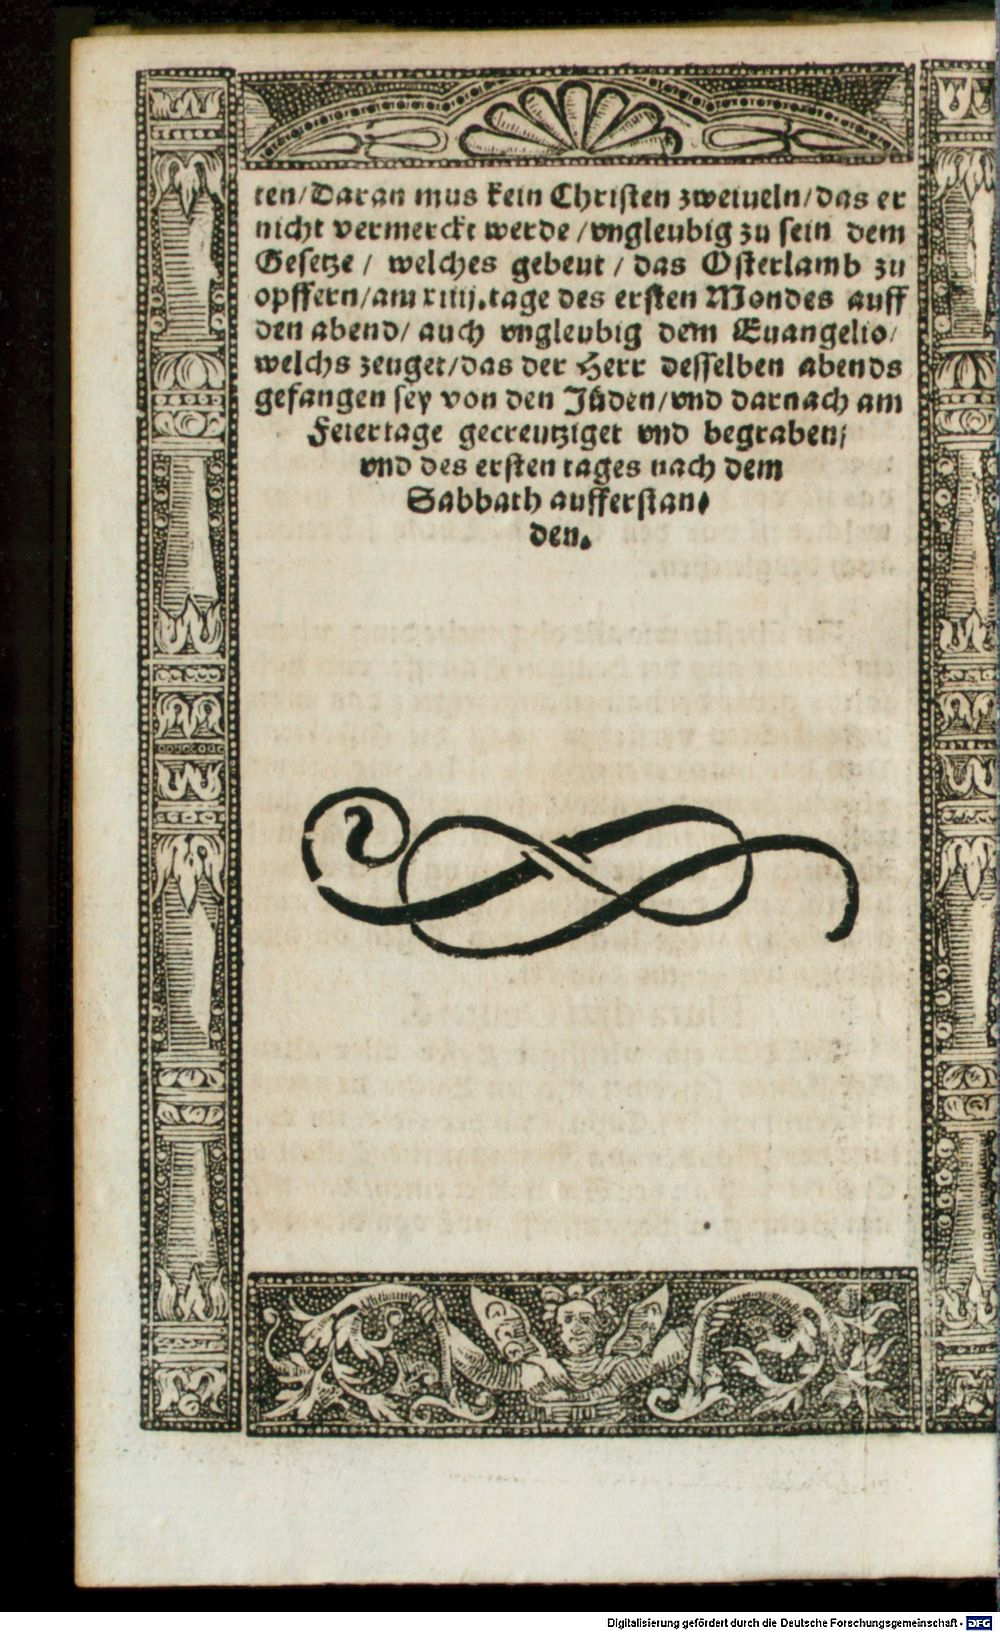 ten/Daran mus kein Christen zweiueln/das er
nicht vermerckt werde/vngleubig zu sein dem
Gesetze/ welches gebeut/ das Osterlamb zu
opffern/am xiiij.tage des ersten Mondes auff
den abend/ auch vngleubig dem Euangelio/
welchs zeuget/das der Herr desselben abends
gefangen sey von den Jüden/vnd darnach am
Feiertage gecreutziget vnd begraben/
vnd des ersten tages nach dem
Sabbath aufferstan-
den.
Digitalisierung gefördert durch die Deutsche Forschungsgemeinschaft - DFG